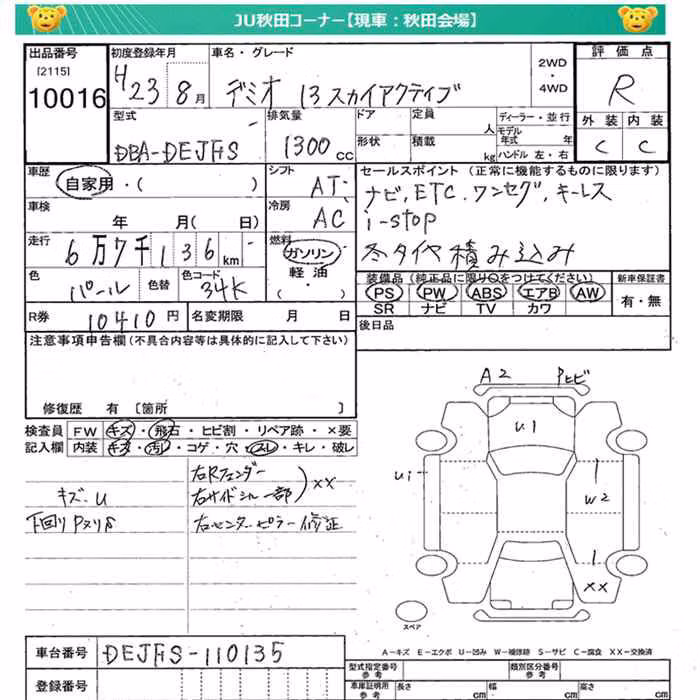 JU秋田コーナー【現車：秋田会場】
出品番号 初度登録年月 車名・グレード 2WD ・ 4WD 評価点
[2115]
10016 H23 8月 デミオ 13スカイアクティブ R
型式 排気量 ドア 定員 人 ディーラー・並行 外装 内装
DBA-DEJFS 1300cc 形状 積載 kg モデル年式 年 ハンドル 左・右 C C
車歴 自家用・( ) シフト AT セールスポイント (正常に機能するものに限ります)
ナビ,ETC.ワンセグ,キーレス
車検 年 月( 日) 冷房 AC i-stop
走行 6万7千136km 燃料 ガソリン・軽油・( ) 冬タイヤ積み込み
色 パール 色替 色コード 34K 装備品(純正品に限り○をつけてください) 新車保証書
PS PW ABS エアB AW 有・無
SR ナビ TV カワ
R券 10410円 名変期限 月 日 後日品
注意事項申告欄(不具合内容等は具体的に記入して下さい)
修復歴 有 [箇所 ]
検査員 FW キズ・飛石・ヒビ割・リペア跡・×要
記入欄 内装 キズ・汚れ・コゲ・穴・スレ・キレ・破レ
キズ.U
下回りPヌリS
右Rフェンダー
右サイドシル一部 ××
右センターピラー修正
A2 Pヒビ
U1
U1
W2
××
スペア
A－キズ E－エクボ U－凹み W－補修跡 S－サビ C－腐食 XX－交換済
車台番号 DEJFS-110135 型式指定番号 参考 類別区分番号 参考
登録番号 車庫証明用 参考 長さ cm 幅 cm 高さ cm